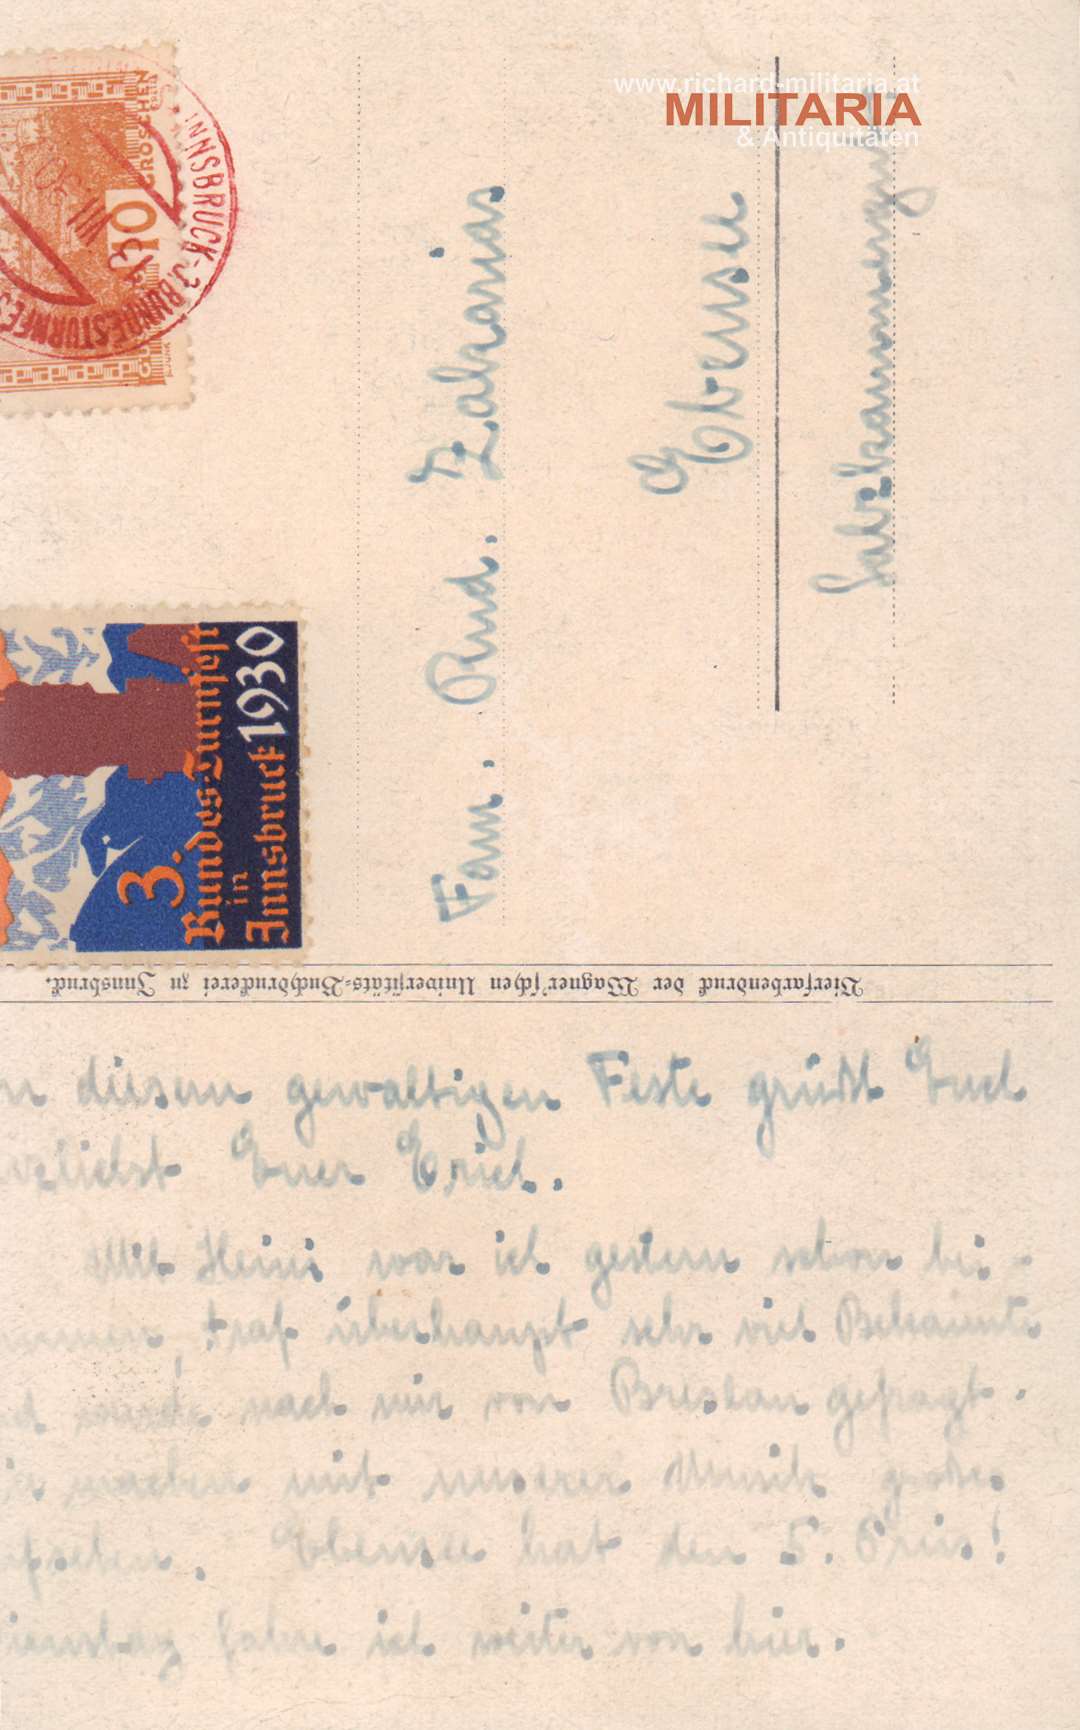 www.richard-militaria.at
MILITARIA
& Antiquitäten
10
GROSCHEN
INNSBRUCK - 3. BUNDESTURNFES
3.
Bundes-Turnfest
in
Innsbruck 1930
Fam. Rud. Zakarias
Ebensee
Salzkammergut
Vierfarbendruck der Wagner'schen Universitäts-Buchdruckerei zu Innsbruck.
n diesem gewaltigen Feste grüßt Euch
rzlichst Euer Erich.
Mit Heini war ich gestern schon bei-
mmen, traf überhaupt sehr viel Bekannte
d wurde nach mir von Breslau gefragt.
ir machen mit unserer Musik großes
ufsehen. Ebensee hat den 5. Preis!
ienstag fahre ich weiter von hier.